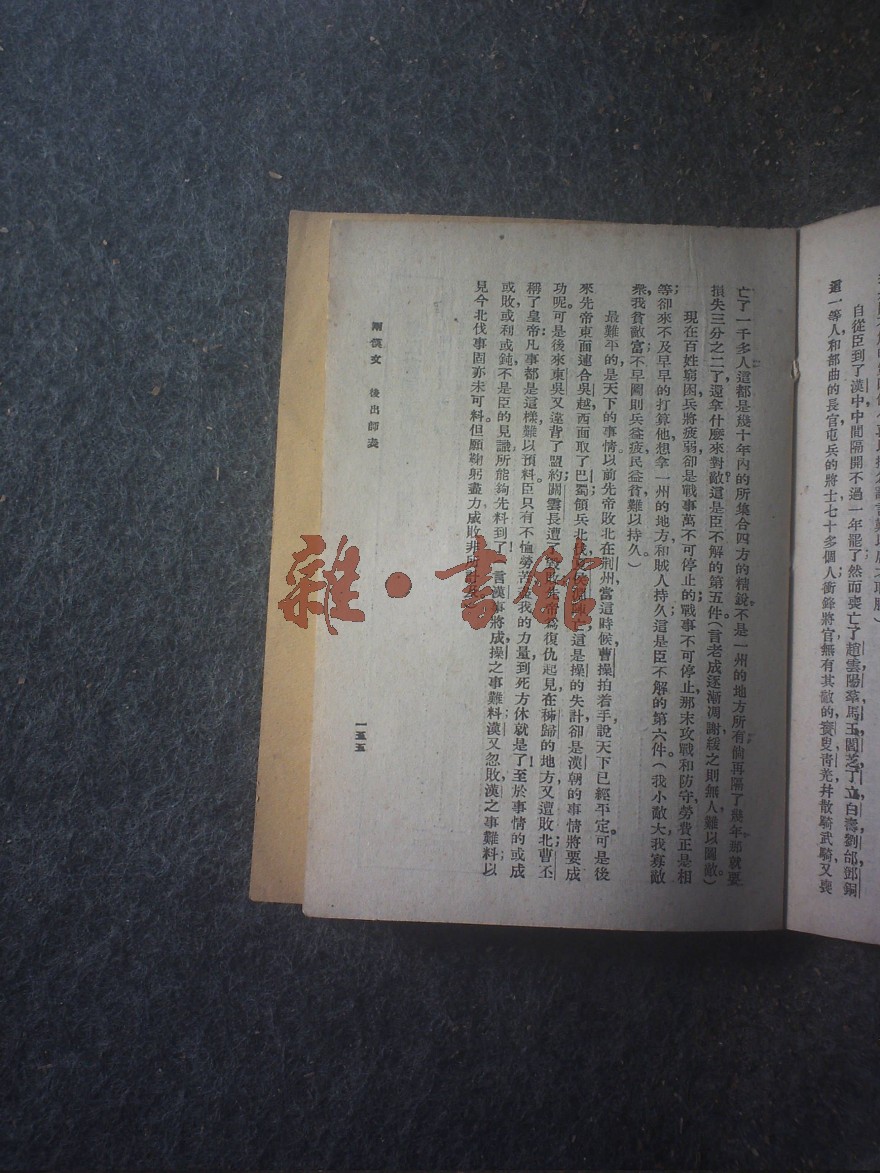 自從臣到了漢中中間隔開不過一年罷了然而喪亡了趙雲陽羣馬玉閻芝丁立白壽劉郃鄧銅
這一等人和部曲的長官屯兵的將士七十多個人衝鋒將官無有其敵的賨叟青羌并散騎武騎又喪
亡了一千多人這都是幾十年內的所集合四方的精銳不是一州的地方所有倘再隔了幾年那就要
損失三分之二了還拿什麼來對敵這是臣不解的第五件。(言老成逐漸凋謝緩之則無人難以圖敵)
現在百姓窮困兵將疲弱卻是戰事萬不可停止的戰事不可停止那末攻戰和防守勞費正是相
等卻來不及早早的打算他想拿一州的地方和賊人持久這是臣不解的第六件。(我小敵大我寡敵
衆我貧敵富不早圖則兵益疲民益貧難以持久。)
最難平的是天下的事情以前先帝敗北在荆州當這時候曹操拍着手說天下已經平定。可是後
來先帝東面連合吳越西面取了巴蜀領兵北伐夏侯淵這是操的失計卻是漢朝的事情將要成
功呢。可是後來東吳又違背了盟約關雲長遭了敗先帝爲復仇起見在秭歸的地方又遭敗北曹丕
稱了皇帝凡事都是這樣難以預料。臣只有不恤勞苦我的力量到死方休就是了至於事情的或成
或敗或利或鈍不是臣的見識所能夠先料到了!(言漢事將成操之事難料漢又忽敗漢之事難料以
見今北伐事固亦未可料但願鞠躬盡力成敗非所
兩漢文　後出師表
一五五
雜·書館